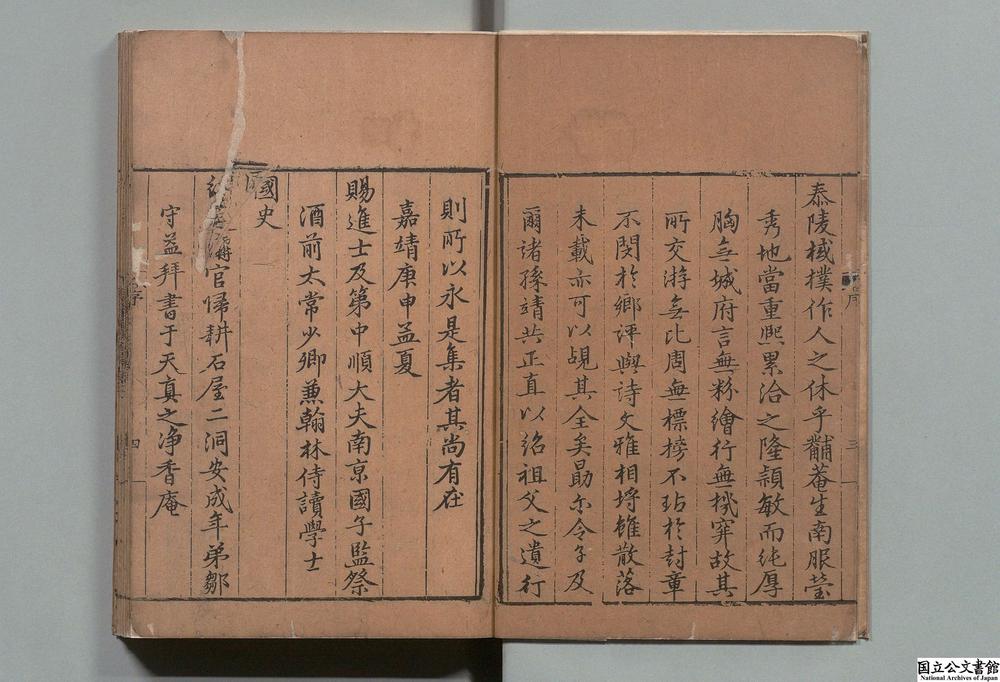 泰陵棫樸作人之休乎黼菴生南服瑩
秀地當重熙累洽之隆穎敏而純厚
胸無城府言無粉繪行無機穽故其
所交游無比周無標榜不玷於封章
不閔於鄉評與詩文雅相埒雖散落
未載亦可以覘其全矣勗尔令子及
爾諸孫靖共正直以紹祖父之遺行
序
三
則所以永是集者其尚有在
嘉靖庚申孟夏
賜進士及第中順大夫南京國子監祭
酒前太常少卿兼翰林侍讀學士
國史
官歸耕石屋二洞安成年弟鄒
守益拜書于天真之淨香庵
序
四
国立公文書館
National Archives of Japan